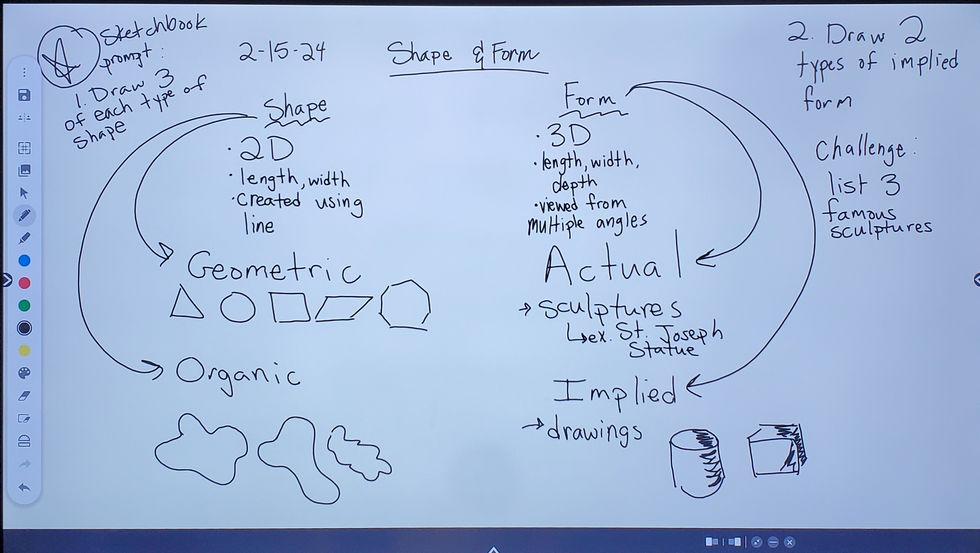 Sketchbook
prompt:
1. Draw 3
of each type of
shape
2-15-24
Shape & Form
Shape
· 2D
· length, width
· Created using
line
Geometric
Organic
Form
· 3D
· length, width,
depth
· viewed from
multiple angles
Actual
→ sculptures
↳ ex. St. Joseph
Statue
Implied
→ drawings
2. Draw 2
types of implied
form
Challenge:
list 3
famous
sculptures